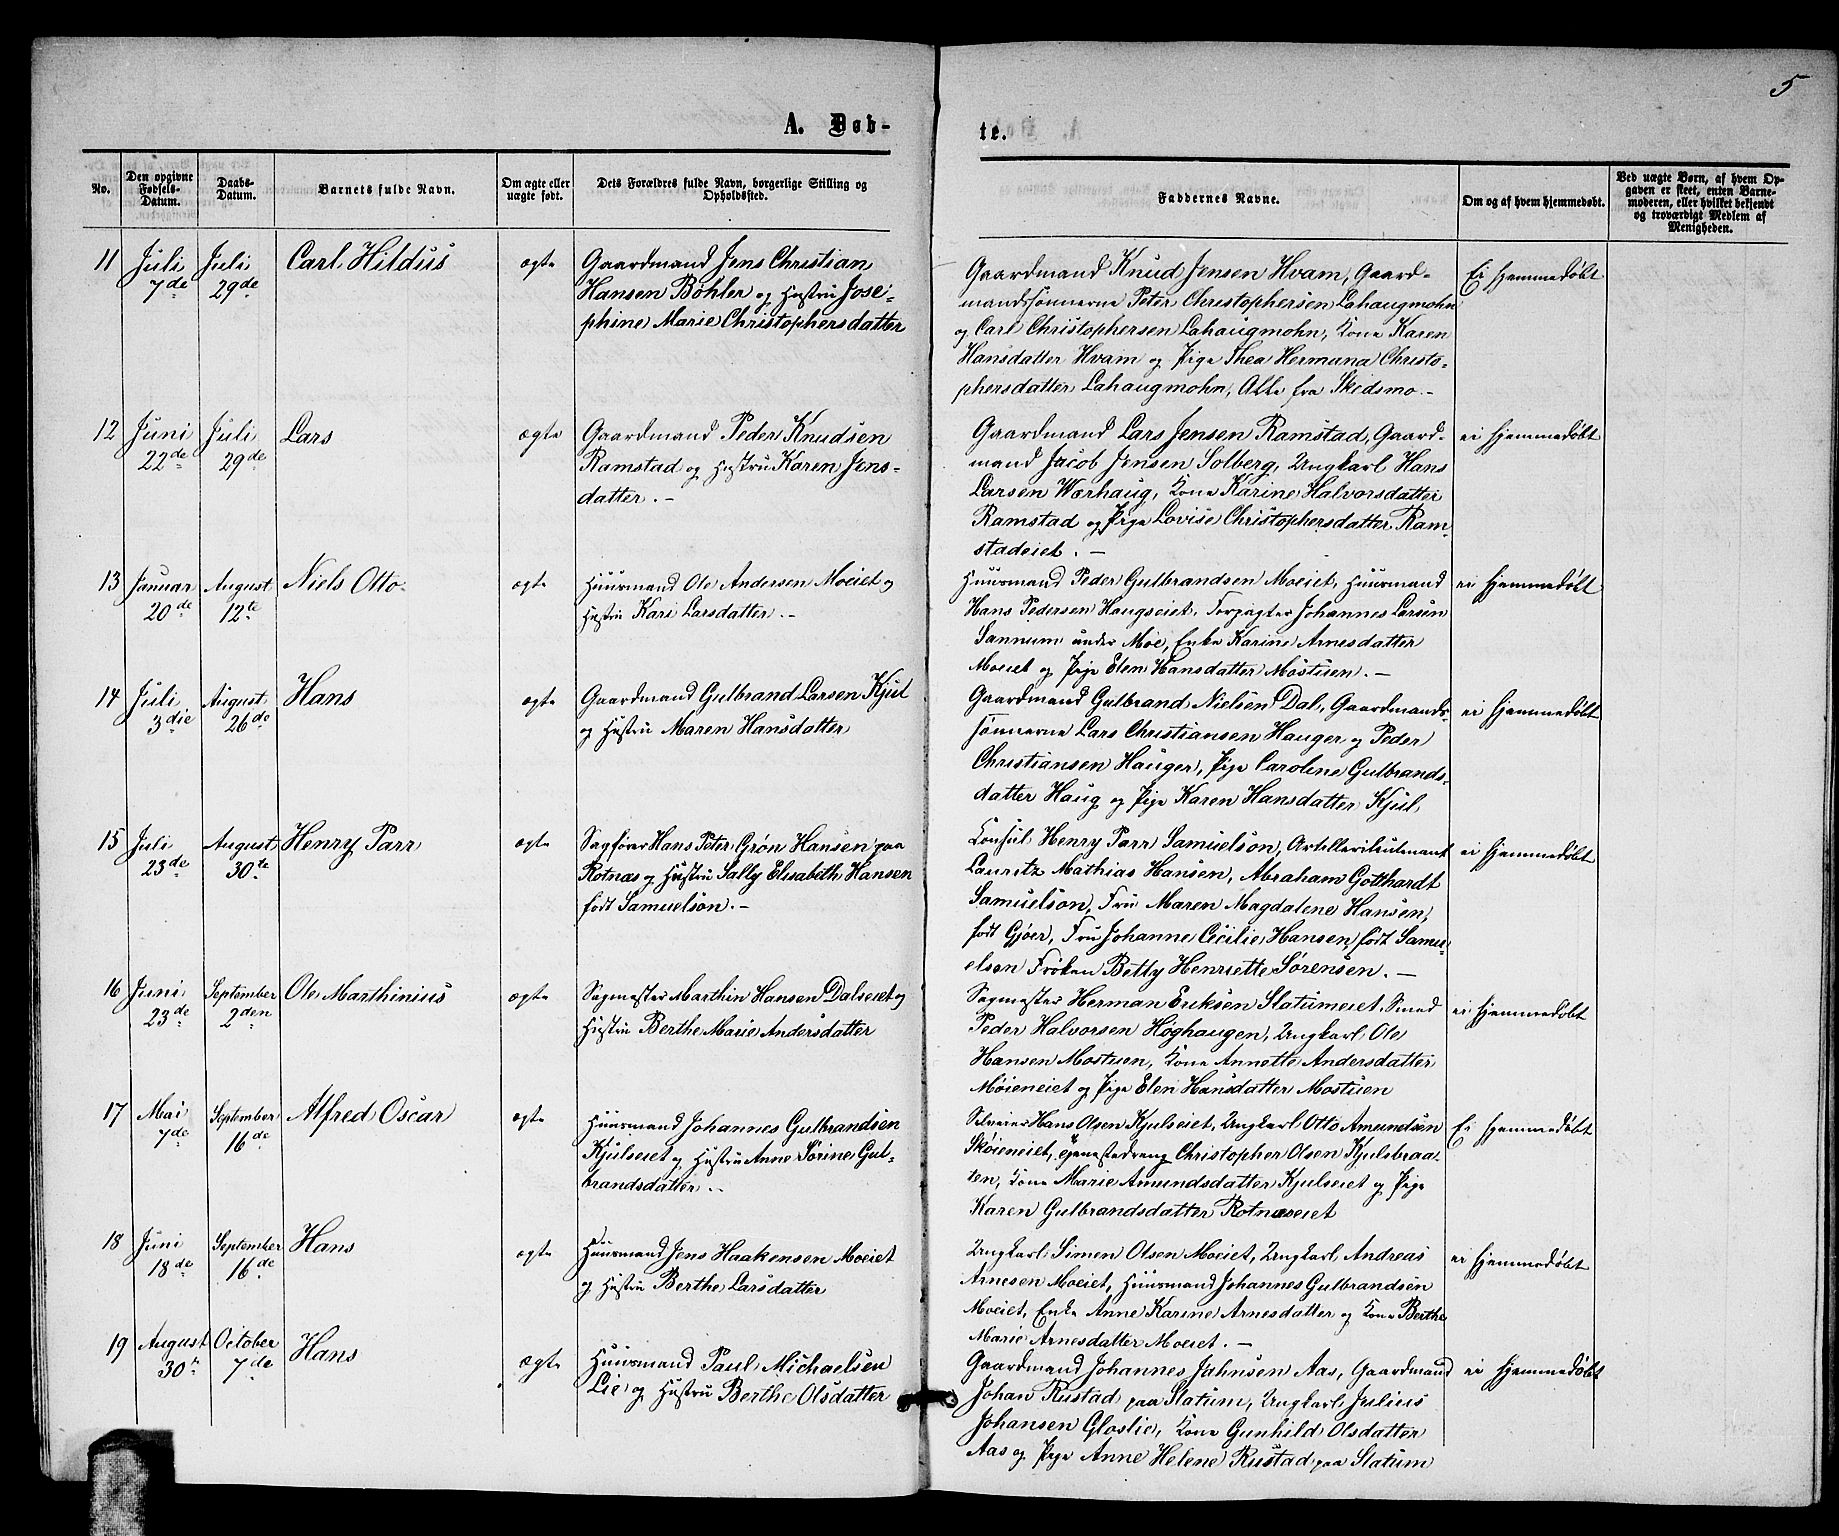 5
A. Døb-
te.
No.
Den opgivne Fødsels-Datum.
Daabs-Datum.
Barnets fulde Navn.
Om ægte eller uægte født.
Dets Forældres fulde Navn, borgerlige Stilling og Opholdssted.
Faddernes Navne.
Om og af hvem hjemmedøbt.
Ved uægte Børn, af hvem Op-
gaven er skeet, enten Barne-
moderen, eller hvilket bekjendt
og troværdigt Medlem af
Menigheden.
11 Juli 7de Juli 29de Carl Hildus ægte
Gaardmand Jens Christian
Hansen Bøhler og Hustru Jose-
phine Marie Christophersdatter
Gaardmand Knud Jensen Hvam, Gaard-
mandssønnerne Peter Christophersen Lahaugmohn
og Carl Christophersen Lahaugmohn, Kone Karen
Hansdatter Hvam og Pige Thea Hermana Christo-
phersdatter Lahaugmohn, Alle fra Skedsmo.-
Ei hjemmedøbt
12 Juni 22de Juli 29de Lars ægte
Gaardmand Peder Knudsen
Ramstad og Hustru Karen Jens-
datter.-
Gaardmand Lars Jensen Ramstad, Gaard-
mand Jacob Jensen Solberg, Ungkarl Hans
Larsen Wærhaug, Kone Karine Halvorsdatter
Ramstad og Pige Lovise Christophersdatter Ram-
stadeiet.-
ei hjemmedøbt
13 Januar 20de August 12te Niels Otto ægte
Huusmand Ole Andersen Moeiet og
Hustru Kari Larsdatter.-
Huusmand Peder Gulbrandsen Moeiet, Huusmand
Hans Pedersen Haugseiet, Forpagter Johannes Larsen
Sannum under Moe, Enke Karine Arnesdatter
Moeiet og Pige Elen Hansdatter Mostuen.-
ei hjemmedøbt
14 Juli 3die August 26de Hans ægte
Gaardmand Gulbrand Larsen Kjul
og Hustru Maren Hansdatter
Gaardmand Gulbrand Nielsen Dal, Gaardmands-
sønnerne Lars Christiansen Hauger og Peder
Christiansen Hauger, Pige Caroline Gulbrands-
datter Haug og Pige Karen Hansdatter Kjul,
ei hjemmedøbt
15 Juli 23de August 30te Henry Parr ægte
Sagfører Hans Peter Grøn Hansen paa
Rotnæs og Hustru Sally Elisabeth Hansen
født Samuelson.-
Consul Henry Parr Samuelson, Artillerilieutenant
Lauritz Mathias Hansen, Abraham Gotthardt
Samuelson, Fru Maren Magdalene Hansen,
født Gjøer, Fru Johanne Cecilie Hansen født Samu-
elsen Frøken Betty Henriette Sørensen.-
ei hjemmedøbt
16 Juni 23de September 2den Ole Marthinius ægte
Sagmester Marthin Hansen Dalseiet og
Hustru Berthe Marie Andersdatter
Sagmester Herman Eriksen Slatumeiet, Smed
Peder Halvorsen Høghaugen, Ungkarl Ole
Hansen Mostuen, Kone Annette Andersdatter
Møieneiet og Pige Elen Hansdatter Mostuen
ei hjemmedøbt
17 Mai 7de September 16de Alfred Oscar ægte
Huusmand Johannes Gulbrandsen
Kjulseiet og Hustru Anne Sørine Gul-
brandsdatter.-
Hans Olsen Kjulseiet, Ungkarl Otto Amundsen
Skøieneiet, Tjenestedreng Christopher Olsen Kjulsbraa-
ten, Kone Marie Amundsdatter Kjulseiet og Pige
Karen Gulbrandsdatter Rotnæseiet
Ei hjemmedøbt
18 Juni 18de September 16de Hans ægte
Huusmand Jens Haakensen Moeiet
og Hustru Berthe Larsdatter
Ungkarl Simen Olsen Moeiet, Ungkarl Andreas
Arnesen Moeiet, Huusmand Johannes Gulbrandsen
Moeiet, Enke Anne Karine Arnesdatter og Kone Berthe
Marie Arnesdatter Moeiet.-
ei hjemmedøbt
19 August 30te October 7de Hans ægte
Huusmand Paul Michaelsen
Lie og Hustru Berthe Olsdatter
Gaardmand Johannes Jahnsen Aas, Gaardmand
Johan Rustad paa Slatum, Ungkarl Julius
Johansen Gloslie, Kone Gunhild Olsdatter
Aas og Pige Anne Helene Rustad paa Slatum
ei hjemmedøbt